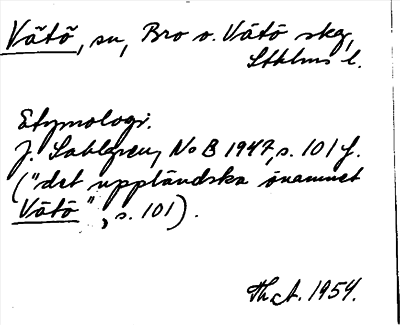 Vätö, sn, Bro o. Vätö skg,
Sthlms l.
Etymologi.
J. Sahlgren, NoB 1947, s. 101 f.
("det uppländska önamnet
Vätö", s. 101).
Th. A. 1954.